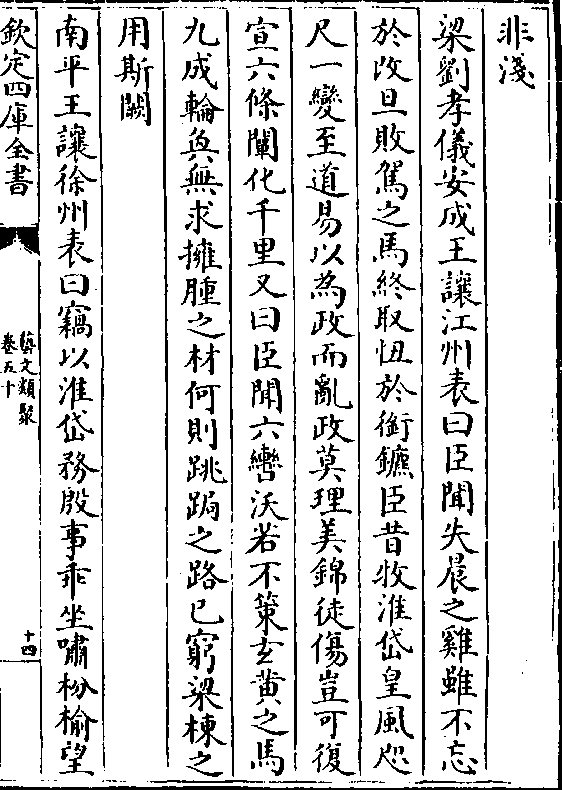 非淺
梁劉孝儀安成王讓江州表曰臣聞失晨之雞雖不忘
於改旦敗駕之馬終取忸於銜鑣臣昔牧淮岱皇風咫
尺一變至道易以為政而亂政莫理美錦徒傷豈可復
宣六條闡化千里又曰臣聞六轡沃若不策玄黄之馬
九成輪奐無求擁腫之材何則跳跼之路已窮梁棟之
用斯闕
南平王讓徐州表曰竊以淮岱務殷事乖坐嘯枌榆望
欽定四庫全書
藝文類聚
卷五十
十四